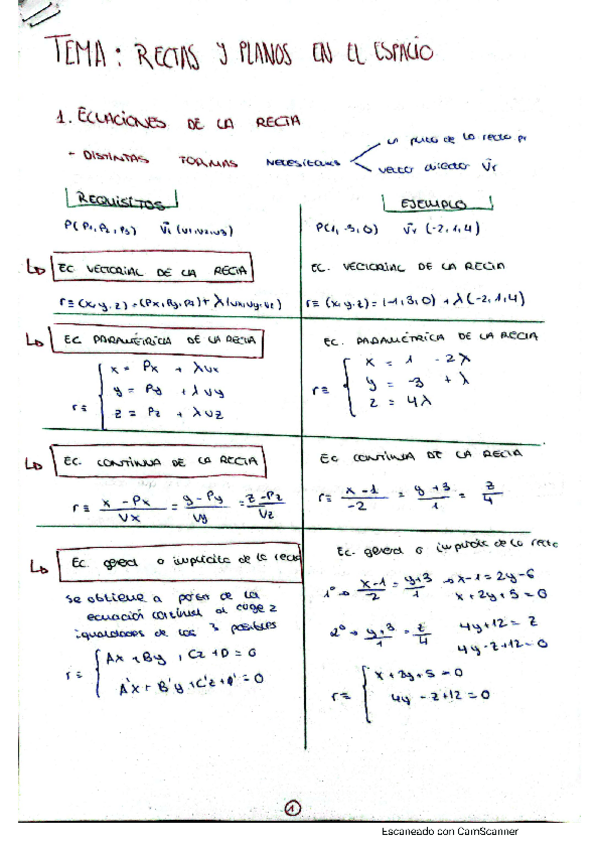 TEMA: RECTAS Y PLANOS EN EL ESPACIO
1. ECUACIONES DE LA RECTA
- DISTINTAS FORMAS NECESITAMOS
un punto de la recta Pr
vector director v⃗r
REQUISITOS
P(P1, P2, P3) v⃗r (v1, v2, v3)
EJEMPLO
P(1, -3, 0) v⃗r (-2, 1, 4)
EC VECTORIAL DE LA RECTA
r ≡ (x, y, z) = (Px, Py, Pz) + λ(vx, vy, vz)
EC. VECTORIAL DE LA RECTA
r ≡ (x, y, z) = (-1, 3, 0) + λ(-2, 1, 4)
EC. PARAMÉTRICA DE LA RECTA
r ≡ { x = Px + λvx
y = Py + λvy
z = Pz + λvz
EC. PARAMÉTRICA DE LA RECTA
r ≡ { x = 1 - 2λ
y = -3 + λ
z = 4λ
EC. CONTINUA DE LA RECTA
r ≡ (x - Px)/Vx = (y - Py)/Vy = (z - Pz)/Vz
EC CONTINUA DE LA RECTA
r ≡ (x - 1)/-2 = (y + 3)/1 = z/4
Ec. general o implícita de la recta
se obtiene a partir de la
ecuación continua al coger 2
igualdades de las 3 posibles
r ≡ { Ax + By + Cz + D = 0
A'x + B'y + C'z + D' = 0
Ec. general o implícita de la recta
1º → (x - 1)/-2 = (y + 3)/1 → x - 1 = 2y - 6
x + 2y + 5 = 0
2º → (y + 3)/1 = z/4 4y + 12 = z
4y - z + 12 = 0
r ≡ { x + 2y + 5 = 0
4y - z + 12 = 0
1
Escaneado con CamScanner